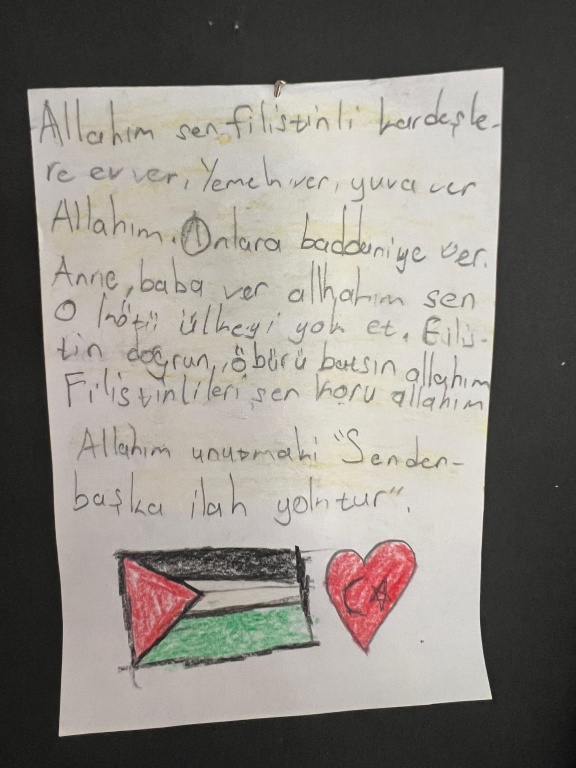 Allahım sen filistinli kardeşle-
re ev ver, Yemek ver, yuva ver
Allahım. Onlara baddaniye ver.
Anne, baba ver allhahım sen
O kötü ülkeyi yok et. Filis-
tin doğrun, öbürü batsın allahım
Filistinlileri sen koru allahım
Allahım unutmaki "Senden-
başka ilah yoktur".